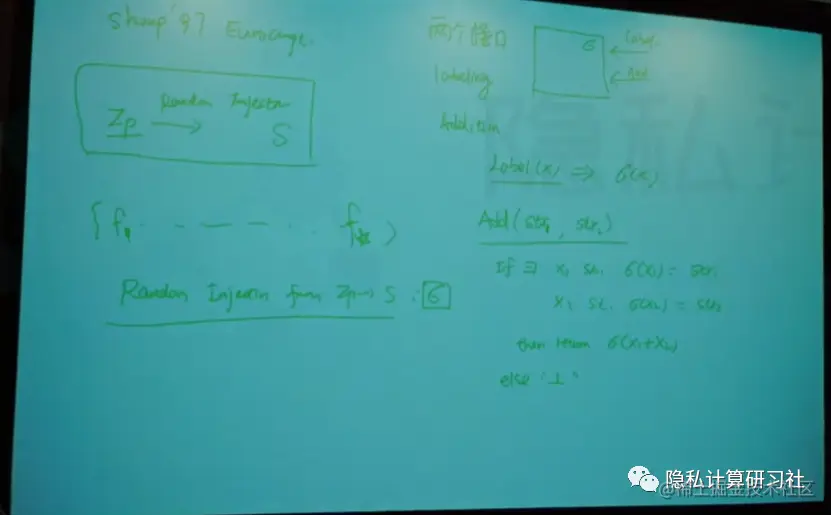 Shoup '97 Eurocrypt.
Random Injection
Zp → S
{ f1 . . — — — . . f }
Random Injection from Zp → S : σ
两个接口
labeling
Addition
σ
Label
Add
Label(x) ⇒ σ(x)
Add(str1, str2)
If ∃ x1 st. σ(x1) = str1
x2 st. σ(x2) = str2
then return σ(x1+x2)
else '⊥'
隐私计算研习社
@稀土掘金技术社区